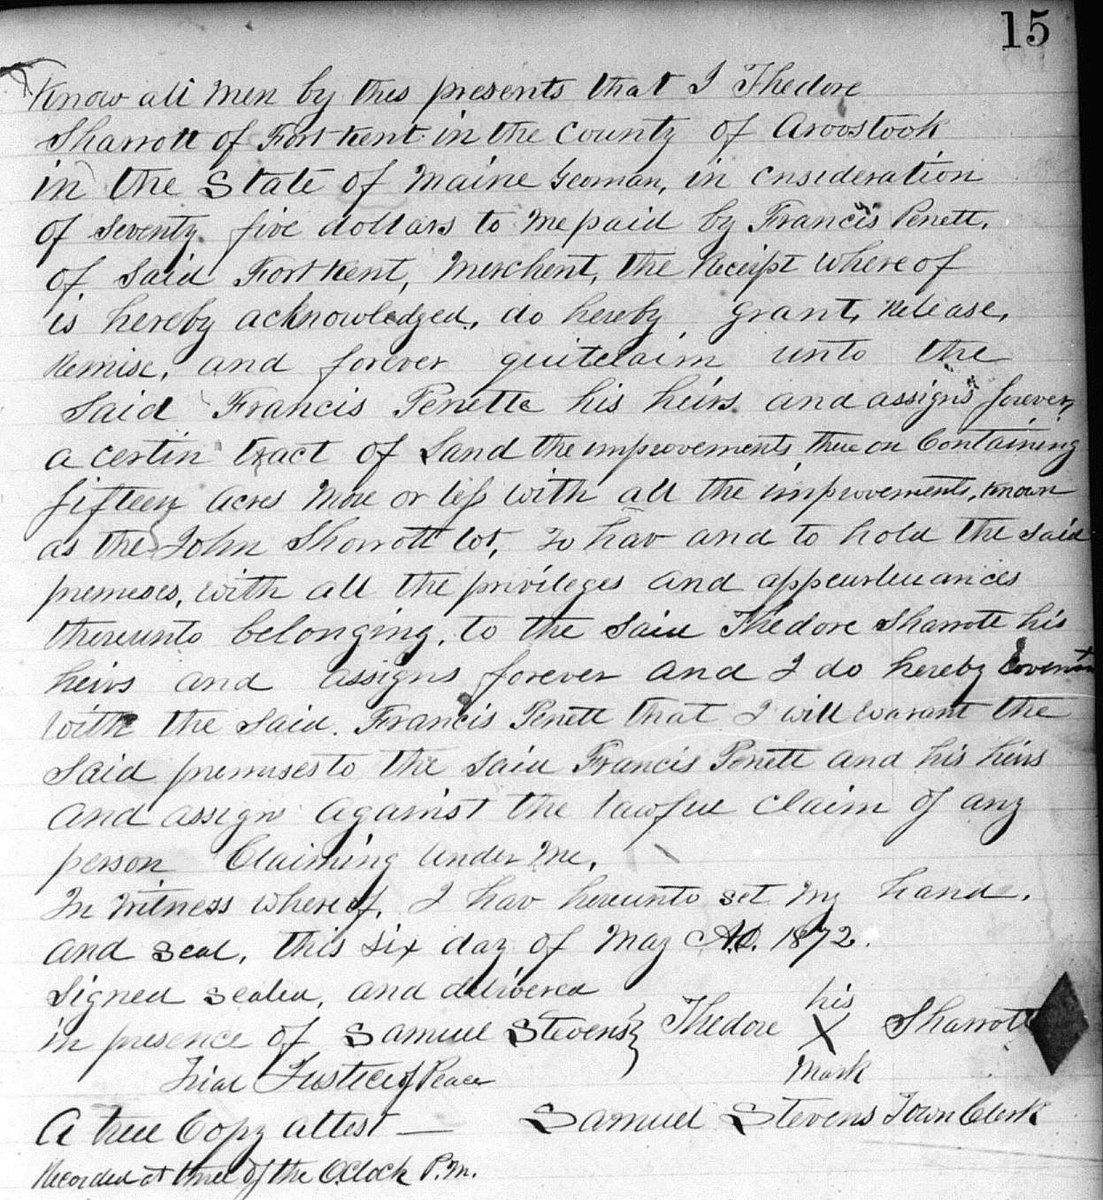 15
Know all Men by thes presents that I Thedore
Sharrott of Fort Kent in the County of Aroostook
in the State of Maine Yeoman, in cnsideration
of Seventy five dollars to Me paid by Francis Penett,
of Said Fort Kent, Merchent, the Receipt where of
is hereby acknowledged, do hereby, grant, Release,
Remise, and forever quiteclaim unto the
Said Francis Penette his heirs and assigns forever,
a certin tract of Land the improvements thereon Containing
fifteen Acres More or less with all the improvements, known
as the John Shorrott lot, To hav and to hold the Said
premeses, with all the privileges and appeurtenances
thereunto belonging, to the Said Thedore Sharrott his
heirs and assigns forever and I do hereby Covenan
With the Said. Francis Penett that I will warant the
Said premises to the Said Francis Penett and his heirs
and assign against the lawful claim of any
person Claiming Under Me.
In Witness whereof, I hav hereunto set my hand.
and seal, this Six day of May A.D. 1872.
Signed sealed, and delivered
in presence of Samuel Stevens } Thedore his X Sharrott
Trial Justice of Peace Mark
A true Copy attest — Samuel Stevens Town Clerk
Recorded at three of the OClock P.M.